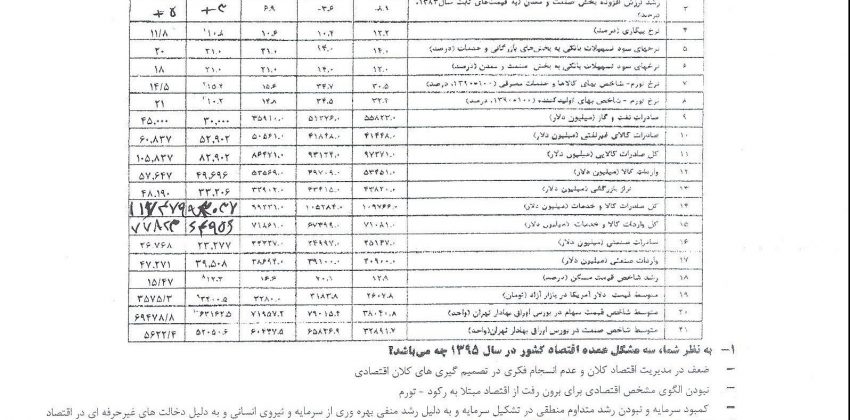 ۳ رشد ارزش افزوده بخش صنعت و معدن (به قیمت‌های ثابت سال ۱۳۸۳، درصد) -۸.۹ -۳.۶ ۶.۹
۴ نرخ بیکاری (درصد) ۱۲.۲ ۱۰.۴ ۱۰.۶ ۱۰.۸ ۱۱/۸
۵ نرخهای سود تسهیلات بانکی به بخش‌های بازرگانی و خدمات (درصد) ۱۴.۰ ۱۴.۰ ۲۱.۰ ۲۱.۰ ۲۰
۶ نرخهای سود تسهیلات بانکی به بخش صنعت و معدن (درصد) ۱۲.۰ ۱۴.۰ ۲۱.۰ ۲۱.۰ ۱۸
۷ نرخ تورم- شاخص بهای کالاها و خدمات مصرفی (۱۰۰=۱۳۹۰، درصد) ۳۰.۵ ۳۴.۷ ۱۵.۶ ۱۵.۲ ۱۴/۵
۸ نرخ تورم- شاخص بهای تولیدکننده (۱۰۰=۱۳۹۰، درصد) ۳۴.۵ ۱۴.۸ ۱۰.۲ ۲۱
۹ صادرات نفت و گاز (میلیون دلار) ۵۵۸۲۳.۰ ۵۱۲۷۶.۰ ۳۵۹۱۰.۰ ۳۰,۰۰۰ ۴۵,۰۰۰
۱۰ صادرات کالای غیرنفتی (میلیون دلار) ۴۱۴۴۸.۰ ۴۱۸۴۸.۰ ۵۰۵۶۱.۰ ۵۲,۹۰۲ ۶۰,۸۳۷
۱۱ کل صادرات کالایی (میلیون دلار) ۹۷۲۷۱.۰ ۹۳۱۲۴.۰ ۸۶۴۷۱.۰ ۸۲,۹۰۲ ۱۰۵,۸۳۷
۱۲ واردات کالا (میلیون دلار) ۵۳۴۵۱.۰ ۴۹۷۰۹.۰ ۵۳۵۶۹.۰ ۴۹,۶۹۶ ۵۷,۶۴۷
۱۳ تراز بازرگانی (میلیون دلار) ۴۳۸۲۰.۰ ۴۳۴۱۵.۰ ۳۲۹۰۲.۰ ۳۳,۲۰۶ ۴۸,۱۹۰
۱۴ کل صادرات کالا و خدمات (میلیون دلار) ۱۰۹۷۶۶.۰ ۱۰۵۲۸۴.۰ ۹۹۲۳۱.۰
۱۵ کل واردات کالا و خدمات (میلیون دلار) ۷۱۰۸۱.۰ ۶۷۳۹۹.۰ ۷۱۸۶۱.۰
۱۶ صادرات صنعتی (میلیون دلار) ۲۵۱۴۷.۰ ۲۴۹۹۷.۰ ۲۳,۲۷۷ ۲۶,۷۶۸
۱۷ واردات صنعتی (میلیون دلار) ۴۰۹۰۰.۰ ۳۹۱۰۰.۰ ۳۸۶۹۲.۰ ۳۹,۵۰۸ ۴۷,۲۷۱
۱۸ رشد شاخص قیمت مسکن (درصد) ۱۲.۹ ۲۰.۱ ۱۶.۶ ۱۵/۴۷
۱۹ متوسط قیمت دلار آمریکا در بازار آزاد (تومان) ۲۶۰۷.۸ ۳۱۸۳.۸ ۳۲۸۰.۰ ۳۴۰۰.۵ ۳۵۷۵/۳
۲۰ متوسط شاخص قیمت سهام در بورس اوراق بهادار تهران (واحد) ۳۸۰۴۰.۸ ۷۹۰۱۵.۴ ۷۱۹۵۷.۲ ۶۳۱۶۲.۵ ۶۹۴۷۸/۸
۲۱ متوسط شاخص صنعت در بورس اوراق بهادار تهران (واحد) ۳۲۸۹۱.۷ ۶۵۸۳۶.۹ ۶۰۴۳۷.۵ ۵۲۰۵۰.۶ ۵۶۲۲/۴
۱- به نظر شما، سه مشکل عمده اقتصاد کشور در سال ۱۳۹۵ چه می‌باشد؟
- ضعف در مدیریت اقتصاد کلان و عدم انسجام فکری در تصمیم گیری های کلان اقتصادی
- نبودن الگوی مشخص اقتصادی برای برون رفت از اقتصاد مبتلا به رکود - تورم
- کمبود سرمایه و نبودن رشد متداوم منطقی در تشکیل سرمایه و به دلیل رشد منفی بهره وری از سرمایه و نیروی انسانی و به دلیل دخالت های غیرحرفه ای در اقتصاد